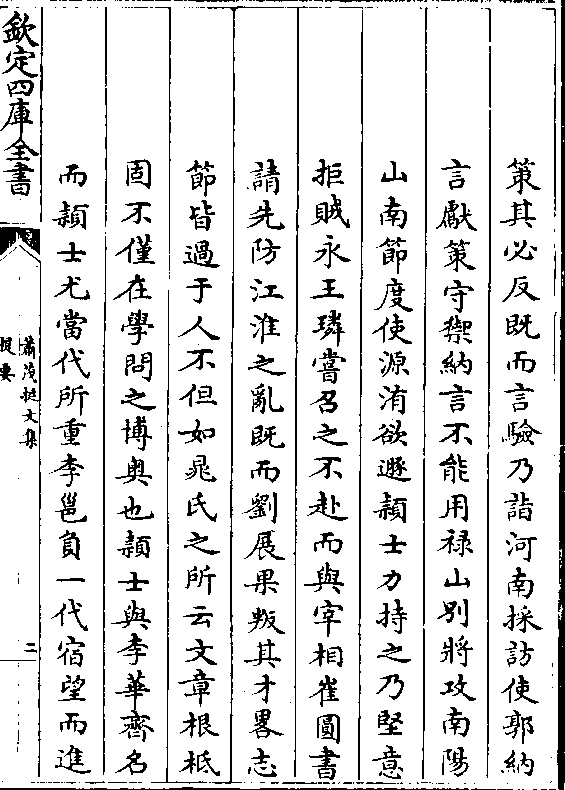 策其必反既而言驗乃詣河南採訪使郭納
言獻策守禦納言不能用禄山别將攻南陽
山南節度使源洧欲遯頴士力持之乃堅意
拒賊永王璘嘗召之不赴而與宰相崔圓書
請先防江淮之亂既而劉展果叛其才畧志
節皆過于人不但如晁氏之所云文章根柢
固不僅在學問之博奥也頴士與李華齊名
而頴士尤當代所重李邕負一代宿望而進
欽定四庫全書
蕭茂挺文集
提要
二